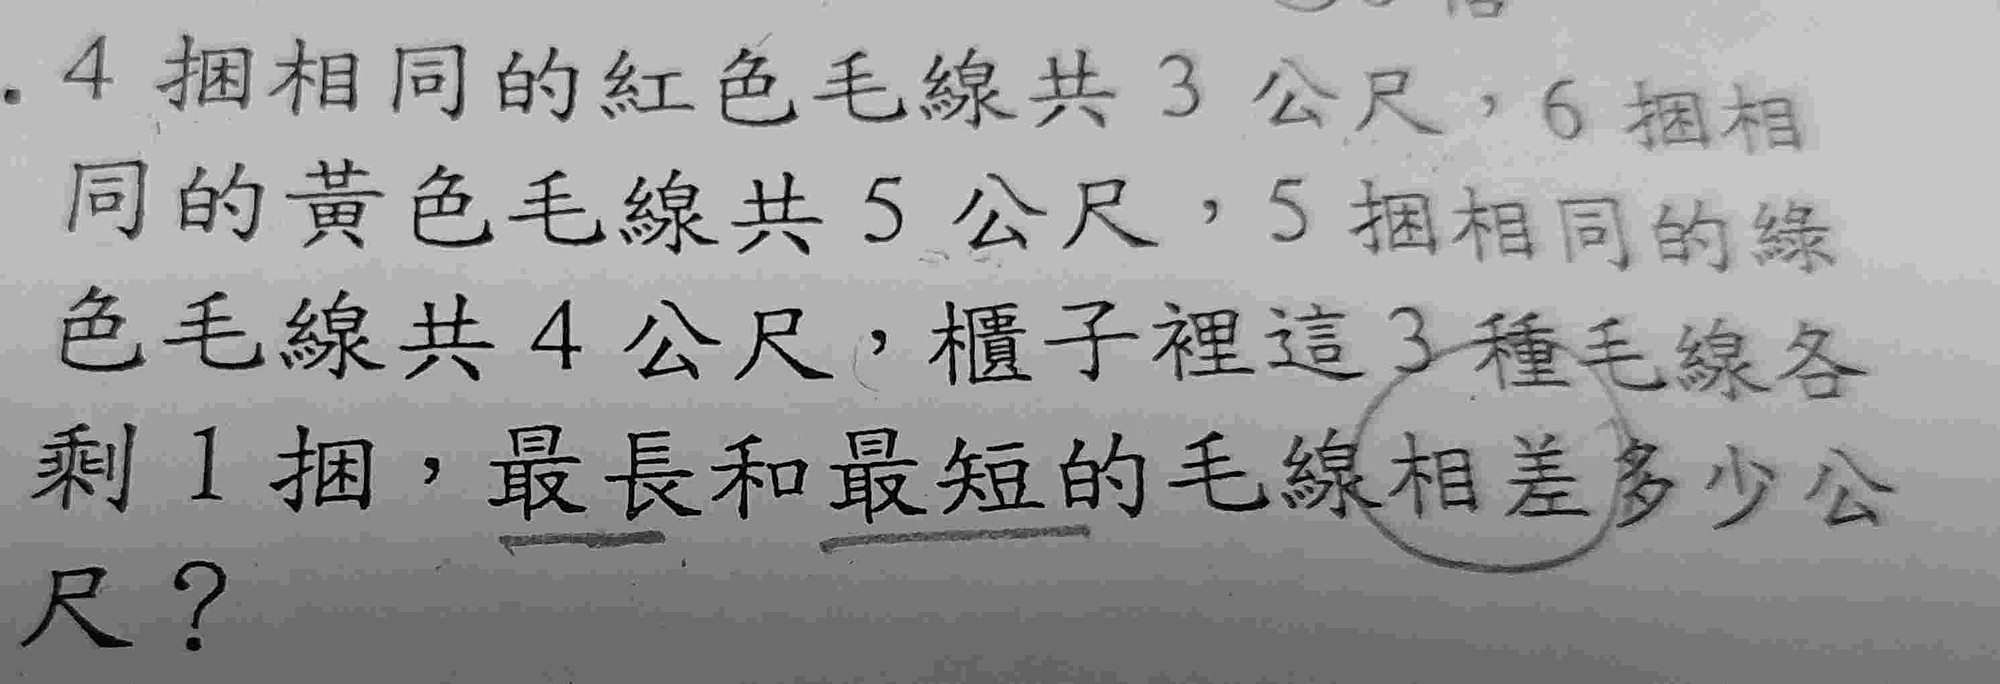 . 4 捆相同的紅色毛線共 3 公尺，6 捆相
同的黃色毛線共 5 公尺，5 捆相同的綠
色毛線共 4 公尺，櫃子裡這 3 種毛線各
剩 1 捆，最長和最短的毛線相差多少公
尺？